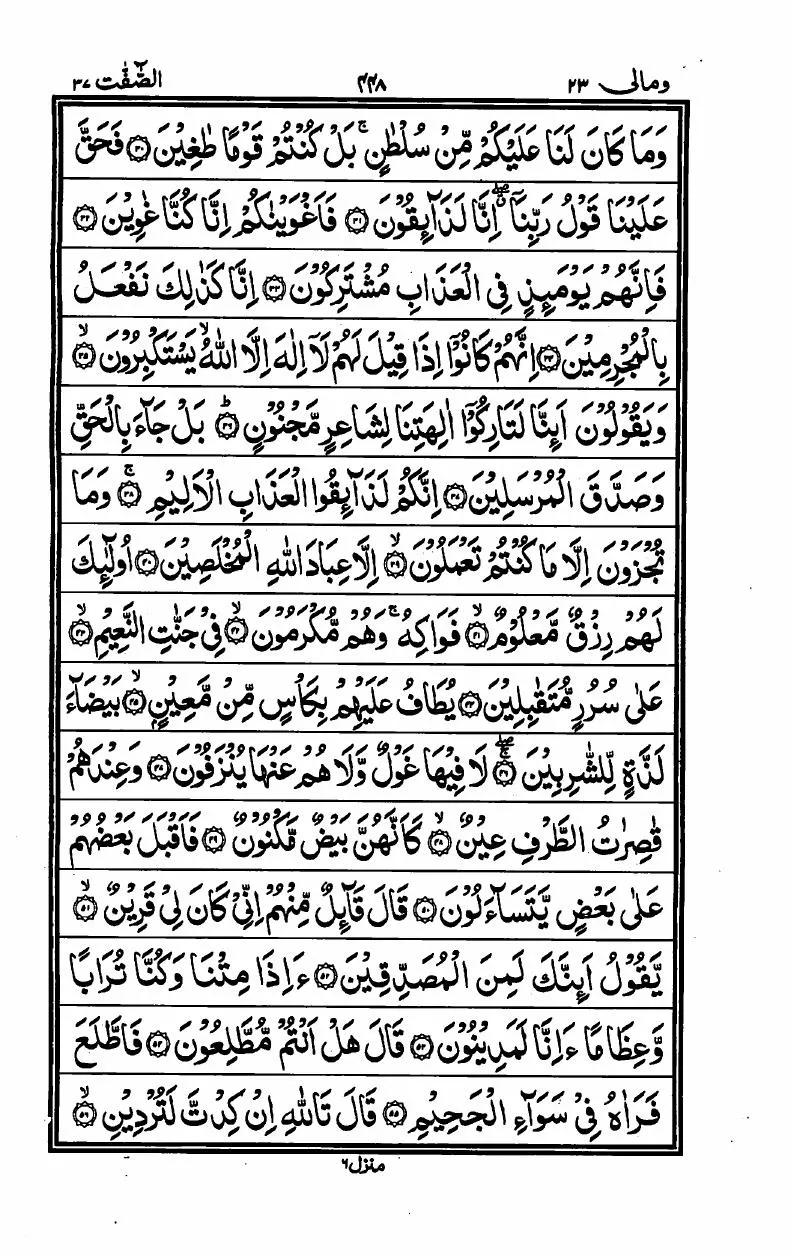 ومالی ٢٣ ٤٤٨ الصّٰٓفّٰت ٣٧
وَمَا كَانَ لَنَا عَلَيْكُمْ مِّنْ سُلْطٰنٍ ۚ بَلْ كُنْتُمْ قَوْمًا طٰغِيْنَ ۝٣٠ فَحَقَّ
عَلَيْنَا قَوْلُ رَبِّنَاۤ ۖ اِنَّا لَذَآىِٕقُوْنَ ۝٣١ فَاَغْوَيْنٰكُمْ اِنَّا كُنَّا غٰوِيْنَ ۝٣٢
فَاِنَّهُمْ يَوْمَىِٕذٍ فِى الْعَذَابِ مُشْتَرِكُوْنَ ۝٣٣ اِنَّا كَذٰلِكَ نَفْعَلُ
بِالْمُجْرِمِيْنَ ۝٣٤ اِنَّهُمْ كَانُوْۤا اِذَا قِيْلَ لَهُمْ لَاۤ اِلٰهَ اِلَّا اللّٰهُ ۙ يَسْتَكْبِرُوْنَ ۝٣٥ ۙ
وَيَقُوْلُوْنَ اَىِٕنَّا لَتَارِكُوْۤا اٰلِهَتِنَا لِشَاعِرٍ مَّجْنُوْنٍ ۝٣٦ ؕ بَلْ جَآءَ بِالْحَقِّ
وَصَدَّقَ الْمُرْسَلِيْنَ ۝٣٧ اِنَّكُمْ لَذَآىِٕقُوا الْعَذَابِ الْاَلِيْمِ ۝٣٨ ۚ وَمَا
تُجْزَوْنَ اِلَّا مَا كُنْتُمْ تَعْمَلُوْنَ ۝٣٩ ۙ اِلَّا عِبَادَ اللّٰهِ الْمُخْلَصِيْنَ ۝٤٠ اُولٰٓىِٕكَ
لَهُمْ رِزْقٌ مَّعْلُوْمٌ ۝٤١ ۙ فَوَاكِهُ ۚ وَهُمْ مُّكْرَمُوْنَ ۝٤٢ ۙ فِىْ جَنّٰتِ النَّعِيْمِ ۝٤٣ ۙ
عَلٰى سُرُرٍ مُّتَقٰبِلِيْنَ ۝٤٤ يُطَافُ عَلَيْهِمْ بِكَاْسٍ مِّنْ مَّعِيْنٍ ۝٤٥ ۙ بَيْضَآءَ
لَذَّةٍ لِّلشّٰرِبِيْنَ ۝٤٦ ۖۚ لَا فِيْهَا غَوْلٌ وَّلَا هُمْ عَنْهَا يُنْزَفُوْنَ ۝٤٧ وَعِنْدَهُمْ
قٰصِرٰتُ الطَّرْفِ عِيْنٌ ۝٤٨ ۙ كَاَنَّهُنَّ بَيْضٌ مَّكْنُوْنٌ ۝٤٩ فَاَقْبَلَ بَعْضُهُمْ
عَلٰى بَعْضٍ يَّتَسَآءَلُوْنَ ۝٥٠ قَالَ قَآىِٕلٌ مِّنْهُمْ اِنِّىْ كَانَ لِىْ قَرِيْنٌ ۝٥١ ۙ
يَّقُوْلُ اَىِٕنَّكَ لَمِنَ الْمُصَدِّقِيْنَ ۝٥٢ ءَاِذَا مِتْنَا وَكُنَّا تُرَابًا
وَّعِظَامًا ءَاِنَّا لَمَدِيْنُوْنَ ۝٥٣ قَالَ هَلْ اَنْتُمْ مُّطَّلِعُوْنَ ۝٥٤ فَاطَّلَعَ
فَرَاٰهُ فِىْ سَوَآءِ الْجَحِيْمِ ۝٥٥ قَالَ تَاللّٰهِ اِنْ كِدْتَّ لَتُرْدِيْنِ ۝٥٦ ۙ
منزل ٦